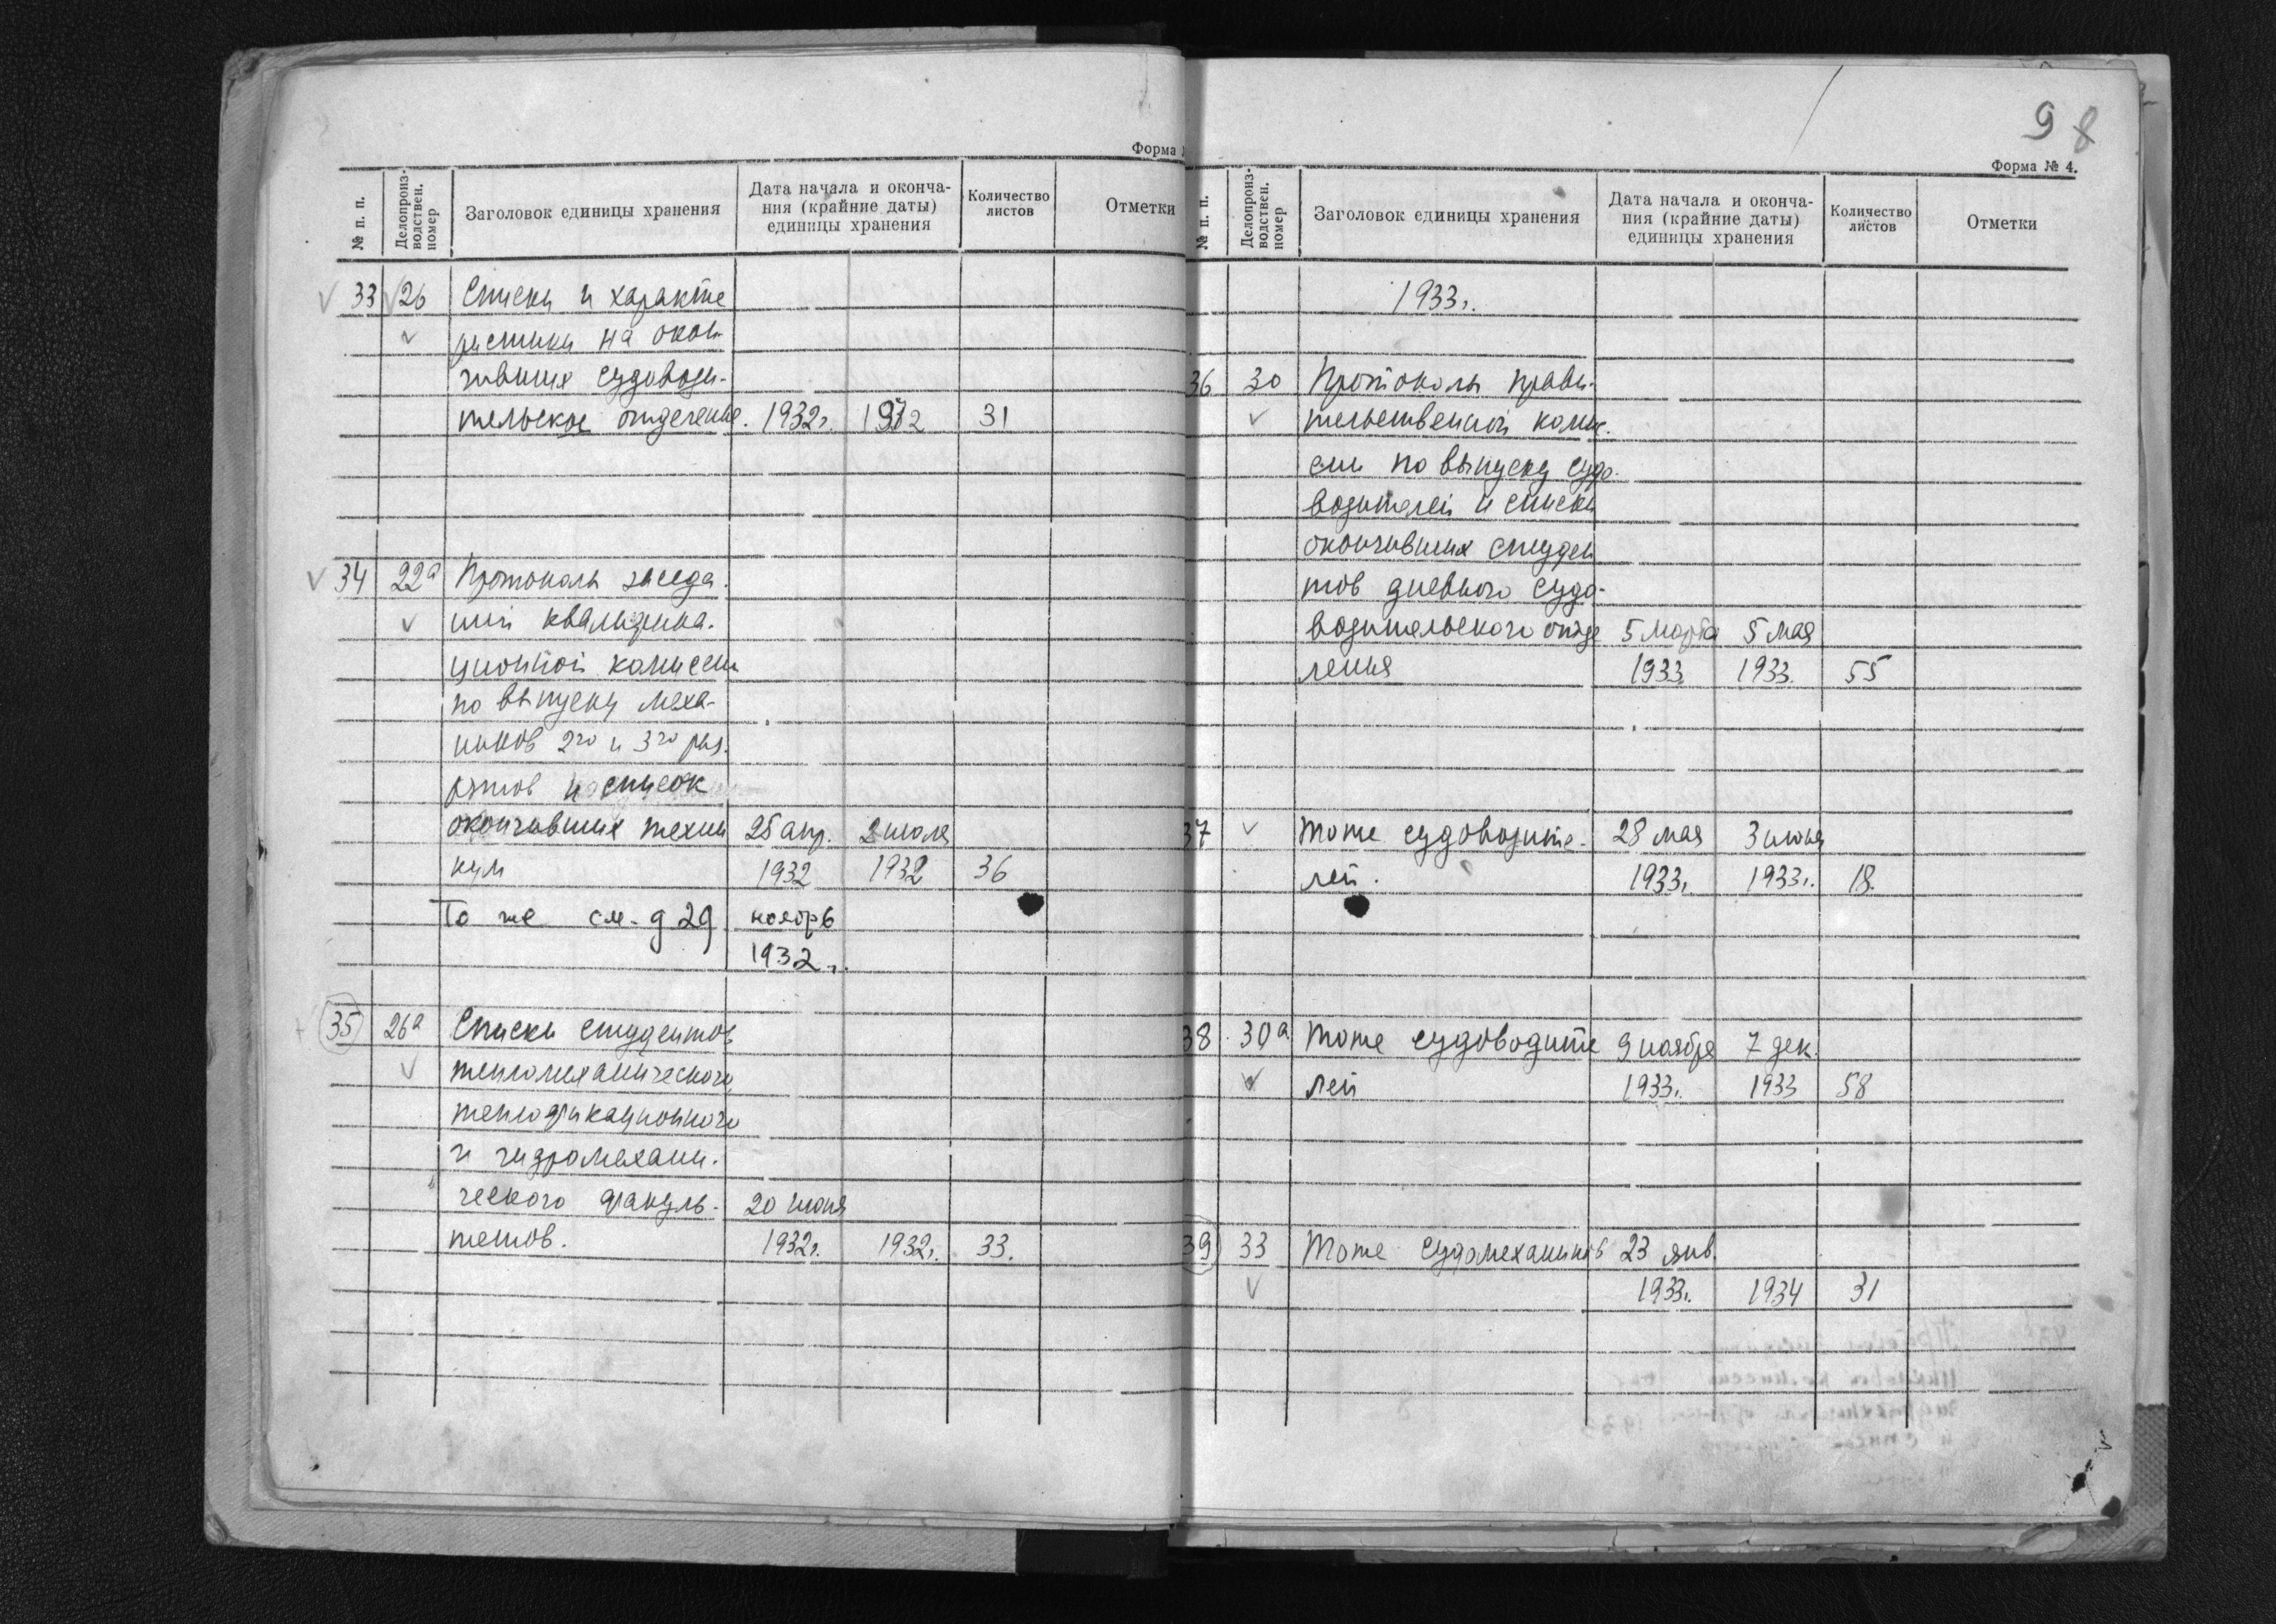 Форма
№ п. п.
Делопроиз-
водствен.
номер
Заголовок единицы хранения
Дата начала и оконча-
ния (крайние даты)
единицы хранения
Количество
листов
Отметки
33 26 Списки и характе
ристики на окон-
чивших судоводи-
тельское отделение. 1932г. 1932 31
34 22а Протоколы заседа-
ний квалифика-
ционной комиссии
по выпуску меха-
ников 2го и 3го раз-
рядов и список
окончивших техни 25 апр. 2 июля
кум 1932 1932 36
То же см. д 29 ноябрь
1932 г.
35 26а Списки студентов
тепломеханического,
теплофикационного
и гидромехани-
ческого факуль- 20 июня
тетов. 1932г. 1932г. 33.
9 8
Форма № 4.
№ п. п.
Делопроиз-
водствен.
номер
Заголовок единицы хранения
Дата начала и оконча-
ния (крайние даты)
единицы хранения
Количество
листов
Отметки
1933г.
36 30 Протоколы прави-
тельственной комис-
сии по выпуску судо-
водителей и списки
окончивших студен
тов дневного судо-
водительского отде 5 марта 5 мая
ления 1933 1933. 55
37 Тоже судоводите- 28 мая 3 июня
лей. 1933г. 1933г. 18.
38 30а Тоже судоводите 9 ноября 7 дек.
лей 1933г. 1933 58
39 33 Тоже судомехаников 23 янв.
1933г. 1934 31